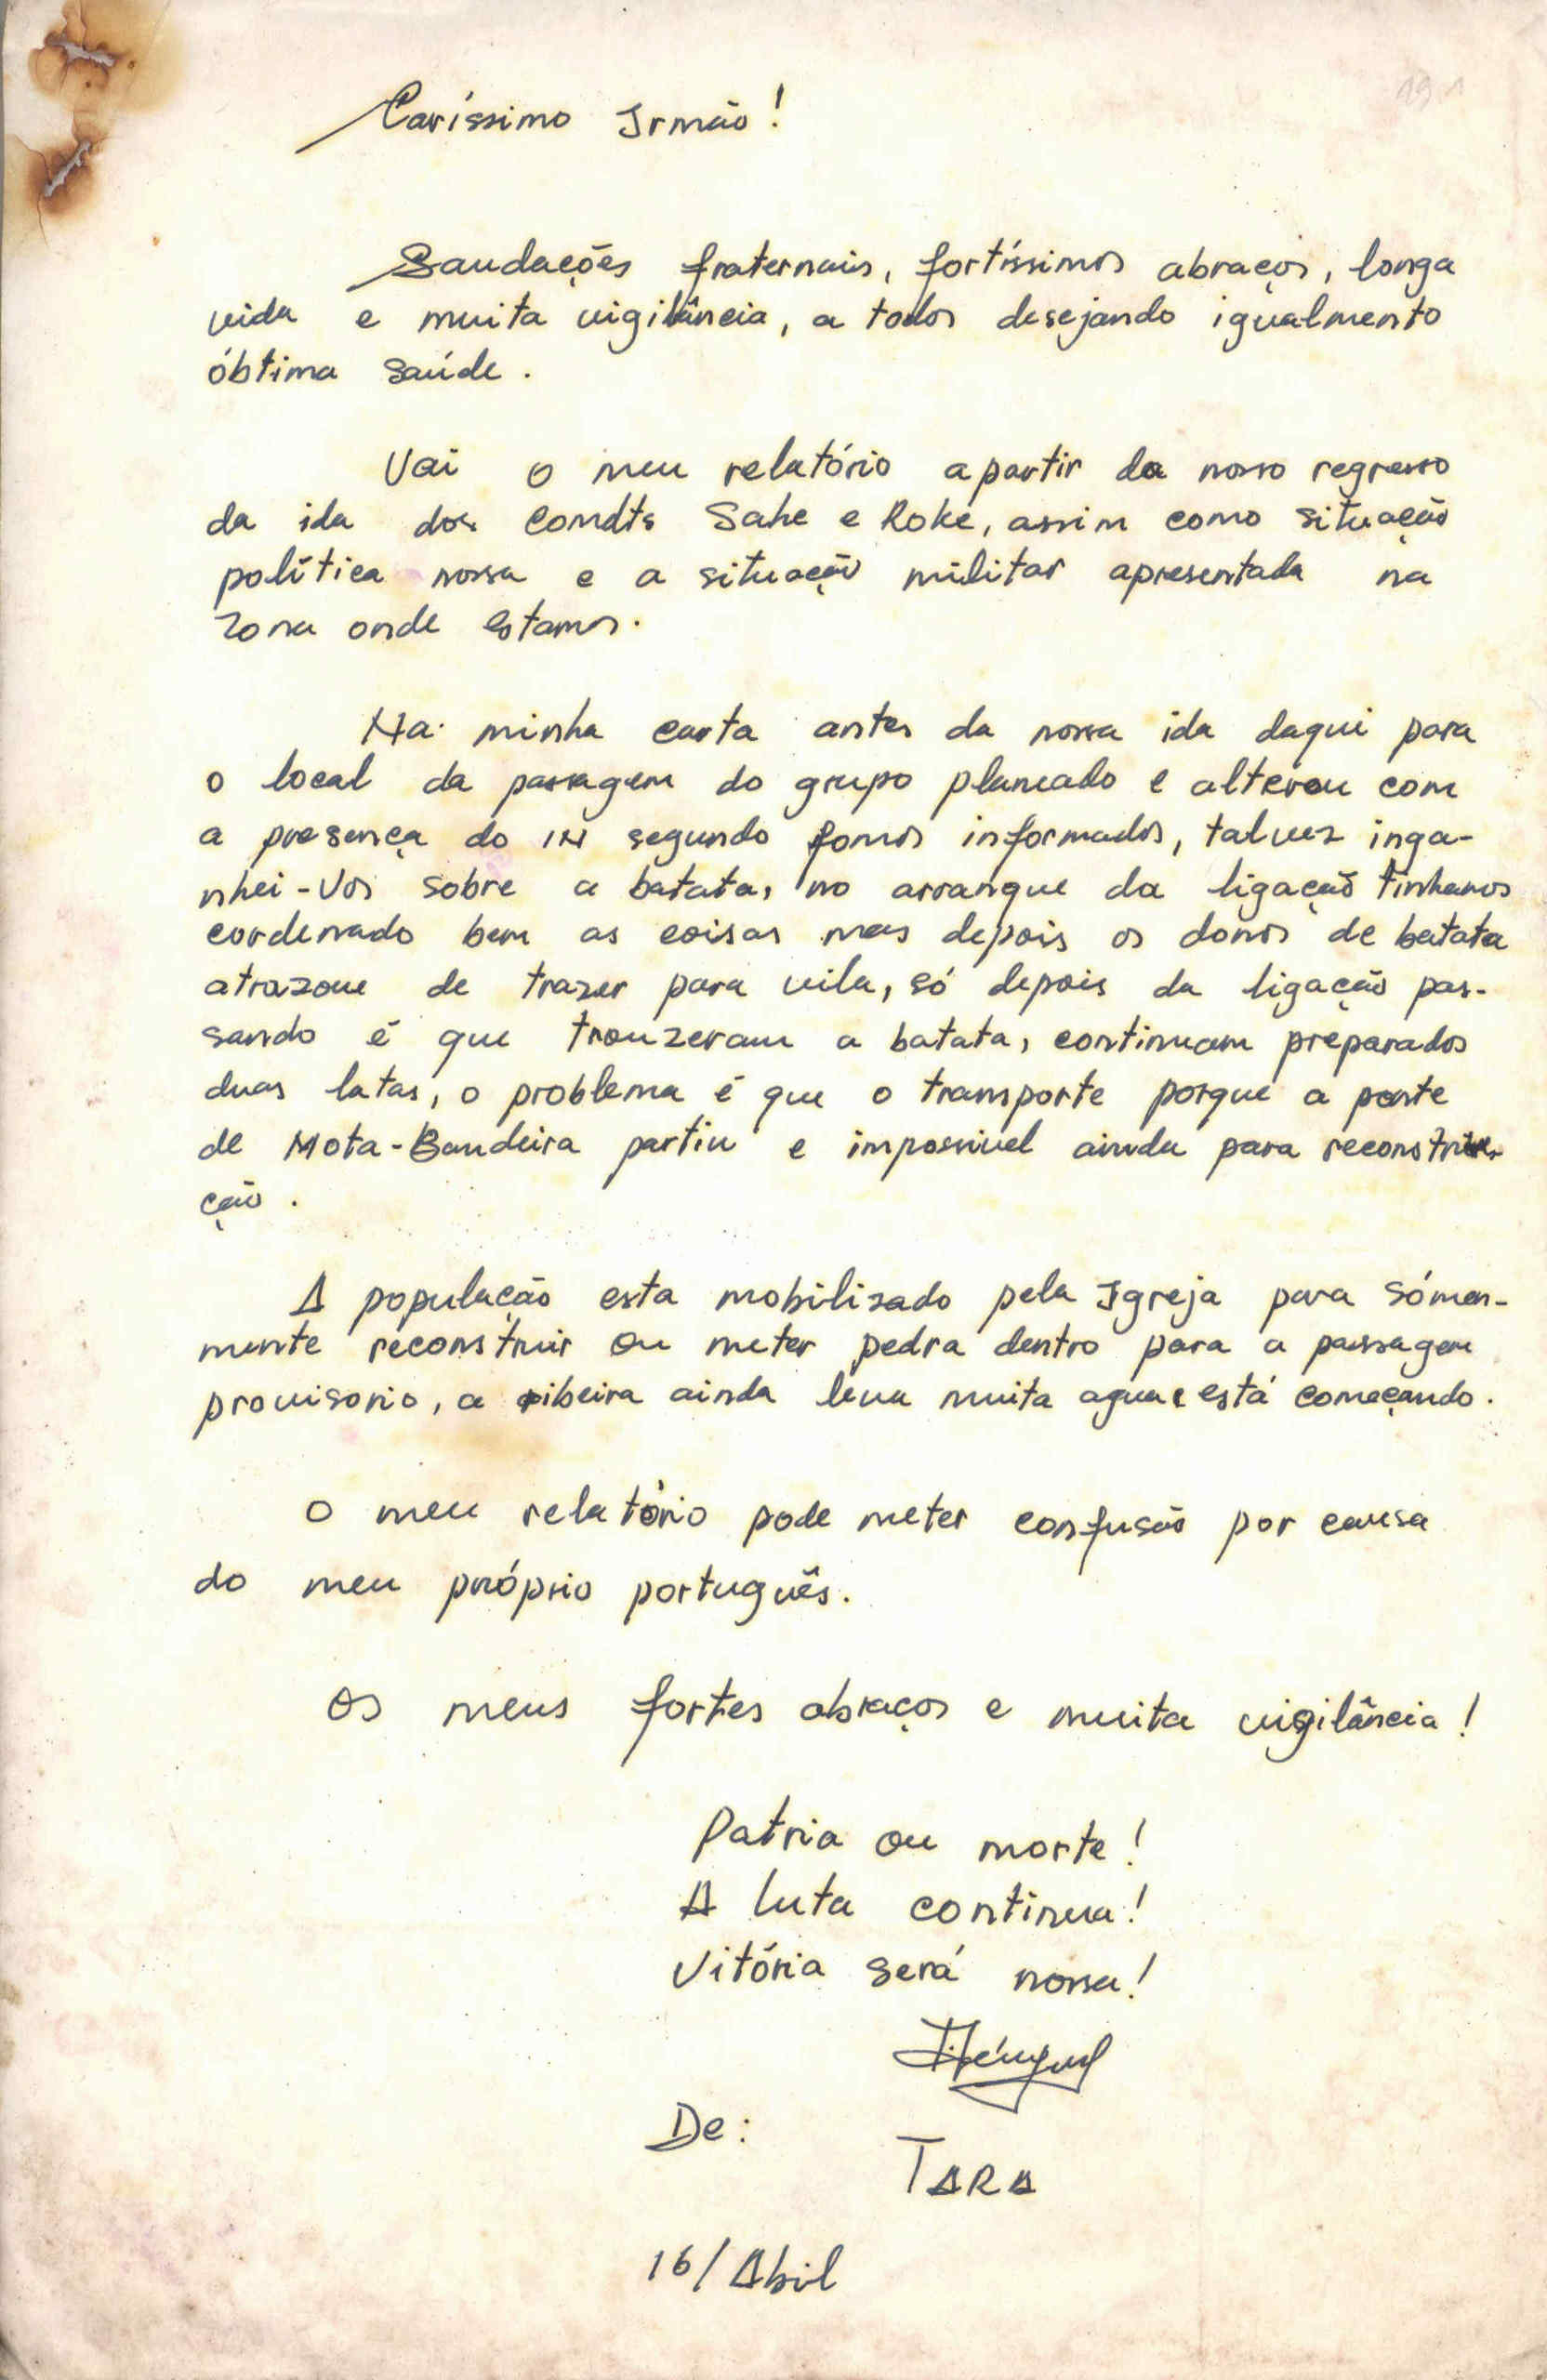 191
Caríssimo Irmão!
Saudações fraternais, fortíssimos abraços, longa
vida e muita vigilância, a todos desejando igualmento
óbtima saúde.
Vai o meu relatório apartir da nosso regresso
da ida dos Comdts Sahe e Roke, assim como situação
política nossa e a situação militar apresentada na
zona onde estamos.
Na minha carta antes da nossa ida daqui para
o local da passagem do grupo planeado e alterou com
a presença do IN segundo fomos informados, talvez inga-
nhei-vos sobre a batata, no arranque da ligação tinhamos
cordenado bem as coisas mas depois os donos de batata
atrazou de trazer para vila, só depois da ligação pas-
sando é que trouzeram a batata, continuam preparados
duas latas, o problema é que o transporte porque a ponte
de Mota-Bandeira partiu e impossivel ainda para reconstru-
ção.
A população esta mobilizado pela Igreja para sómen-
mente reconstruir ou meter pedra dentro para a passagem
provisorio, a ribeira ainda leva muita agua e está começando.
O meu relatório pode meter confusão por causa
do meu próprio português.
Os meus fortes abraços e muita vigilância!
Patria ou morte!
A luta continua!
Vitória será nossa!
De:
TARA
16/Abil